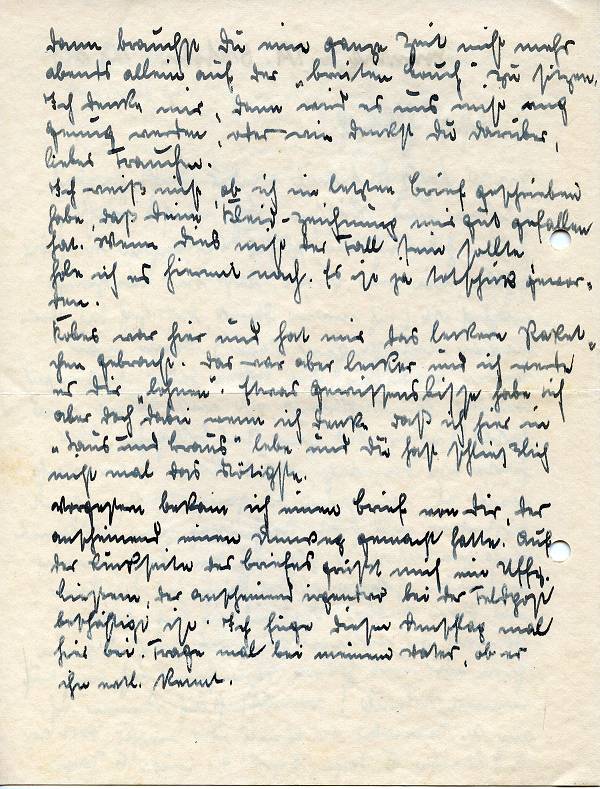 dann brauchst Du eine ganze Zeit nicht mehr
abends allein auf der „breiten Couch" zu sitzen.
Ich denke mir, dann wird es uns nicht eng
genug werden, oder wie denkst Du darüber,
liebes Frauchen.
Ich weiß nicht, ob ich im letzten Brief geschrieben
habe, daß Deine Kleid-Zeichnung mir gut gefallen
hat. Wenn dies nicht der Fall sein sollte
hole ich es hiermit nach. Es ist ja totschick gewor-
den.
Kobes war hier und hat mir das leckere Paket-
chen gebracht. Das war aber lecker und ich werde
es Dir „lohnen". Etwas Gewissensbisse habe ich
aber doch dabei wenn ich denke daß ich hier in
„Saus und Braus" lebe und Du hast schließlich
nicht mal das Nötigste.
Vorgestern bekam ich einen Brief von Dir, der
anscheinend einen Umweg gemacht hatte. Auf
der Rückseite des Briefes grüßt mich ein Uffz.
der anscheinend irgendwo bei der Feldpost
beschäftigt ist. Ich füge diesen Umschlag mal
hier bei. Frage mal bei meinem Vater, ob er
ihn evtl. kennt.